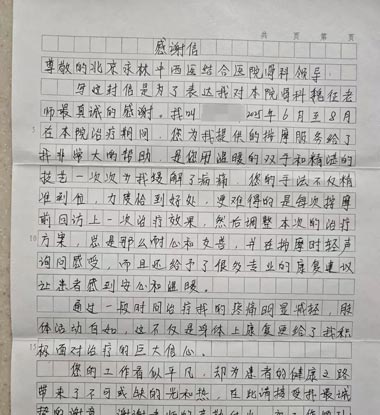 共 页 第 页
感谢信
尊敬的北京永林中西医结合医院骨科领导:
写这封信是为了表达我对本院骨科 老
师最真诚的感谢。我叫 2025年6月至8月
5
在本院治疗期间,您为我提供的按摩服务给了
我非常大的帮助,是您用温暖的双手和精湛的
技艺一次次为我缓解了病痛,您的手法不仅精
准到位,力度恰到好处,更难得的是每次按摩
前回访上一次治疗效果,然后调整本次的治疗
10
方案,总是那么耐心和友善,并在按摩时轻声
询问感受,而且还给予了很多专业的康复建议
让患者感到安心和温暖。
通过一段时间治疗我的疼痛明显减轻,肢
体活动自如,这不仅是身体上康复更给了我积
15
极面对治疗的巨大信心。
您的工作看似平凡,却为患者的健康之路
带来了不可或缺的光和热,在此请接受我最诚
挚的谢意,谢谢